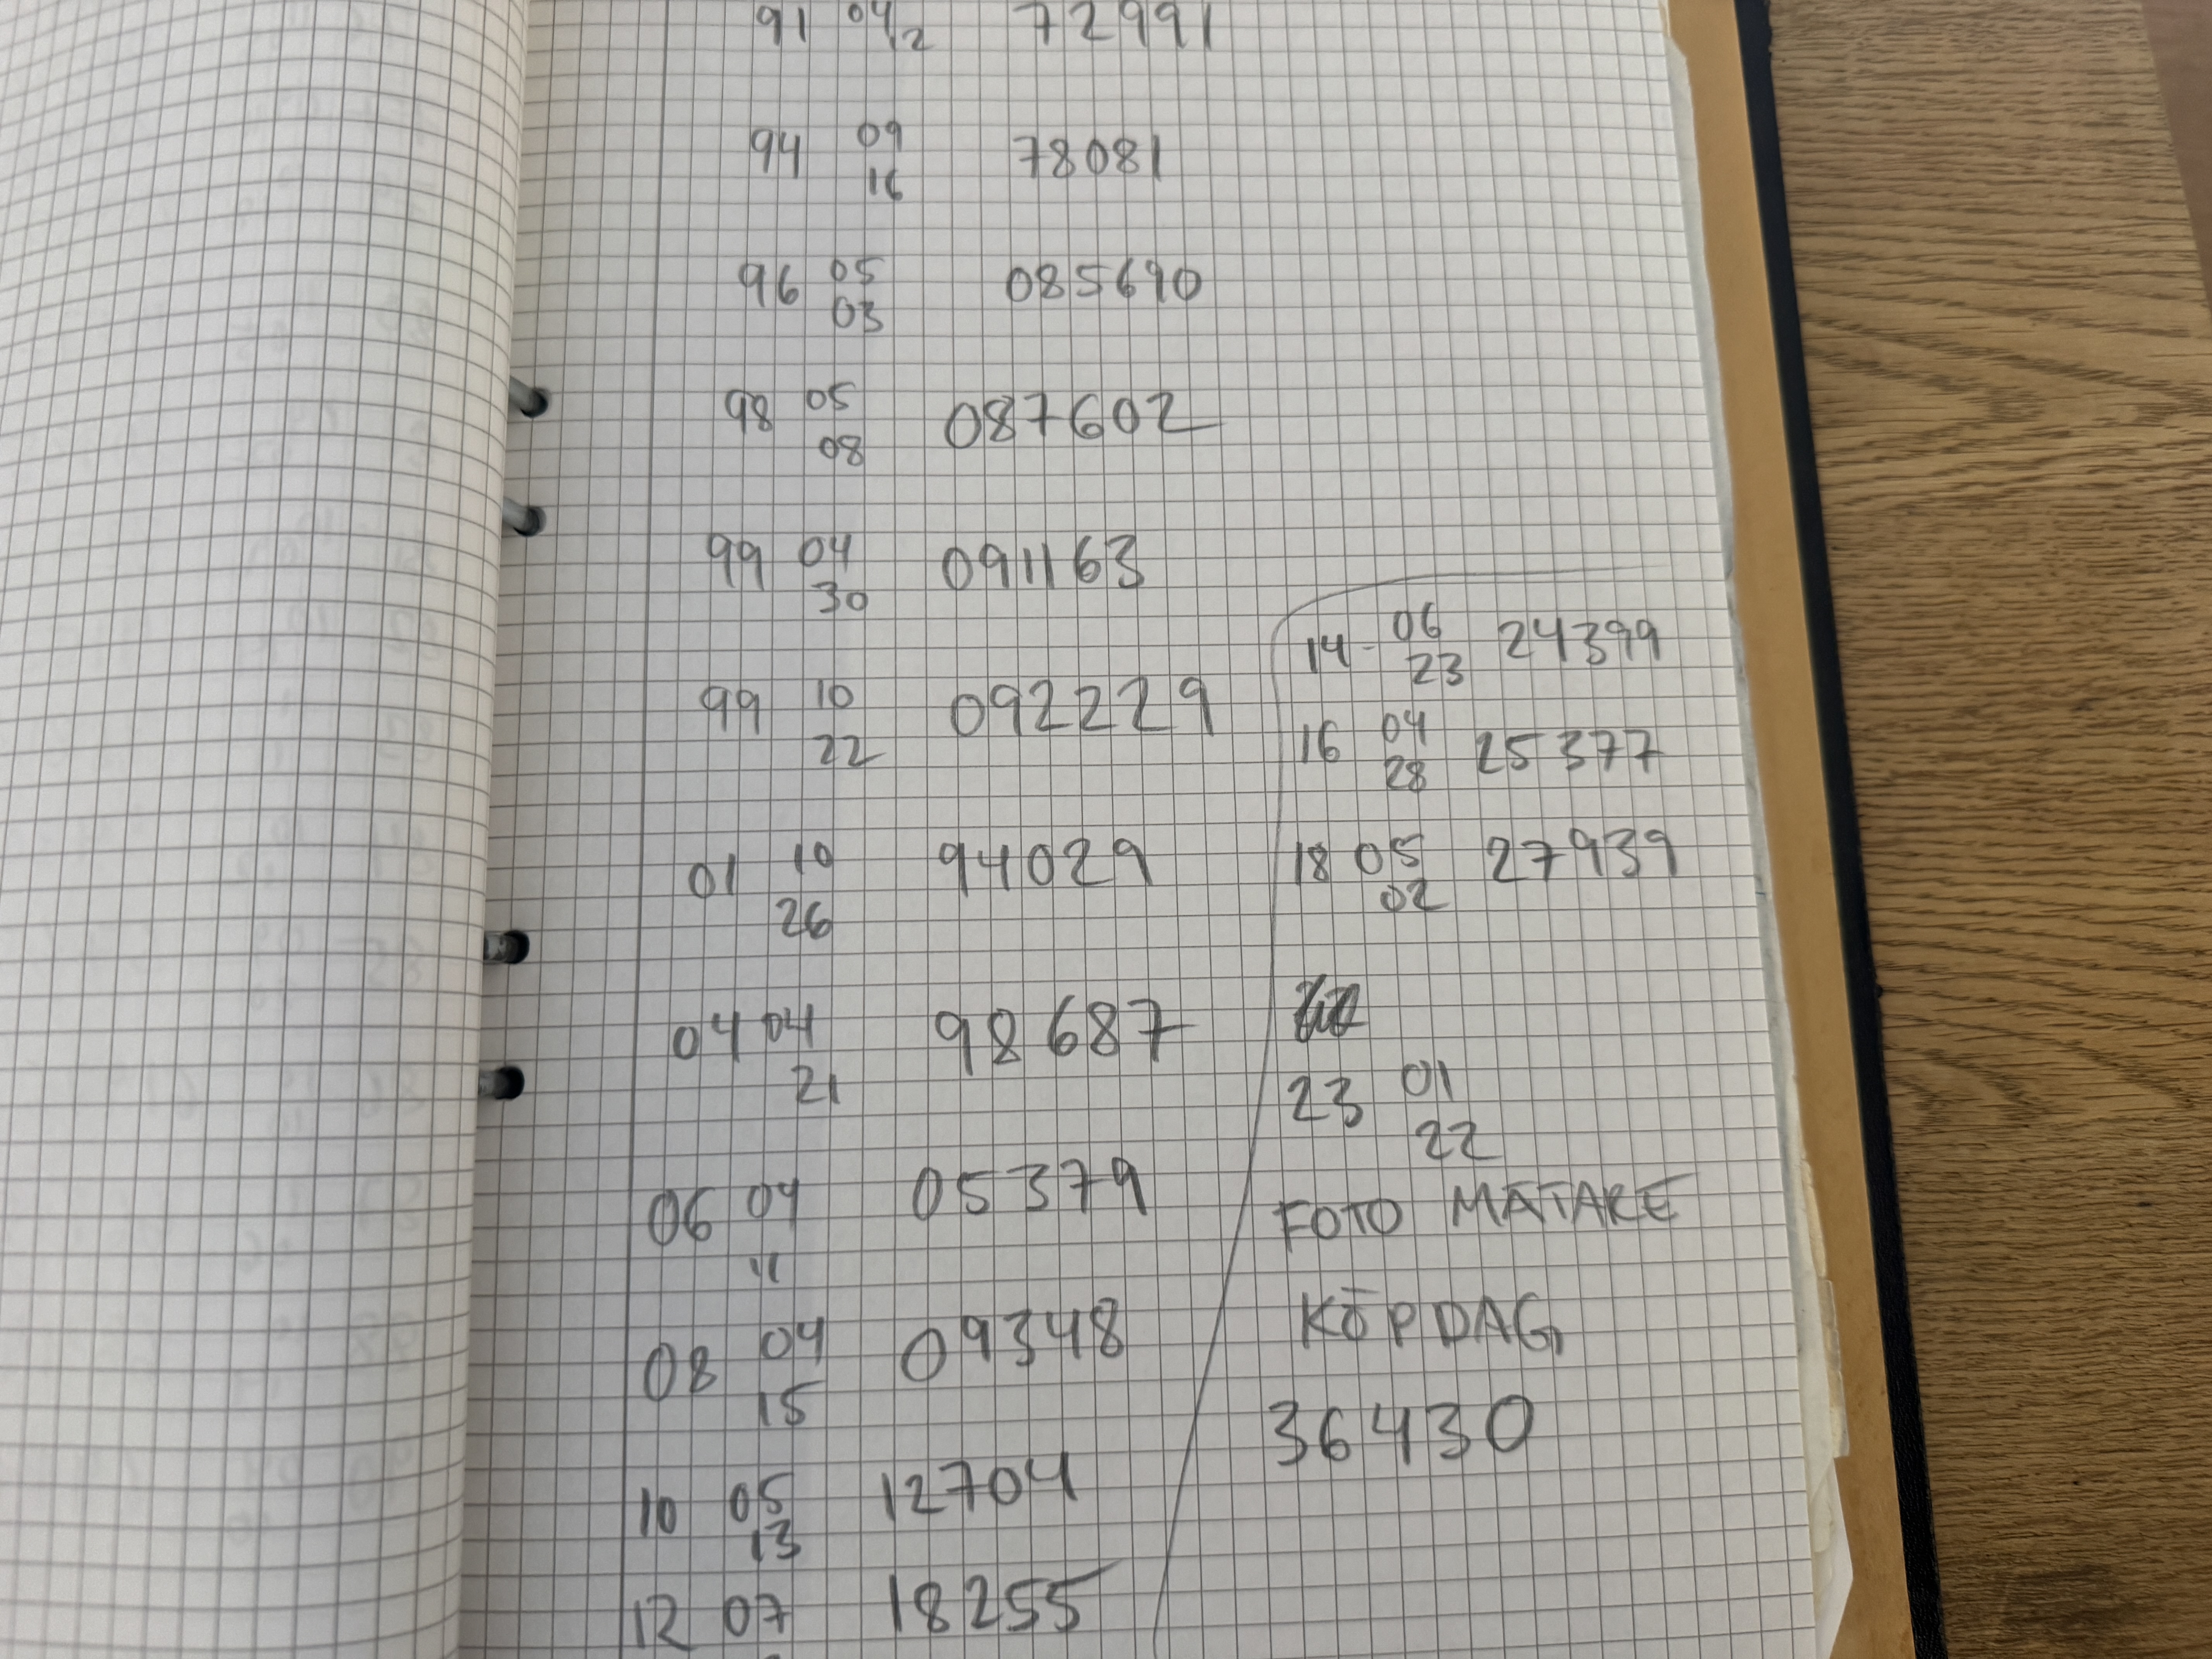 91 04/2 72991
94 09 78081
16
96 05 085690
03
98 05 087602
08
99 04 091163
30
99 10 092229
22
01 10 94029
26
04 04 98687
21
06 04 05379
11
08 04 09348
15
10 05 12704
13
12 07 18255
14- 06 24399
23
16 04 25377
28
18 05 27939
02
23 01
22
FOTO MÄTARE
KÖPDAG
36430